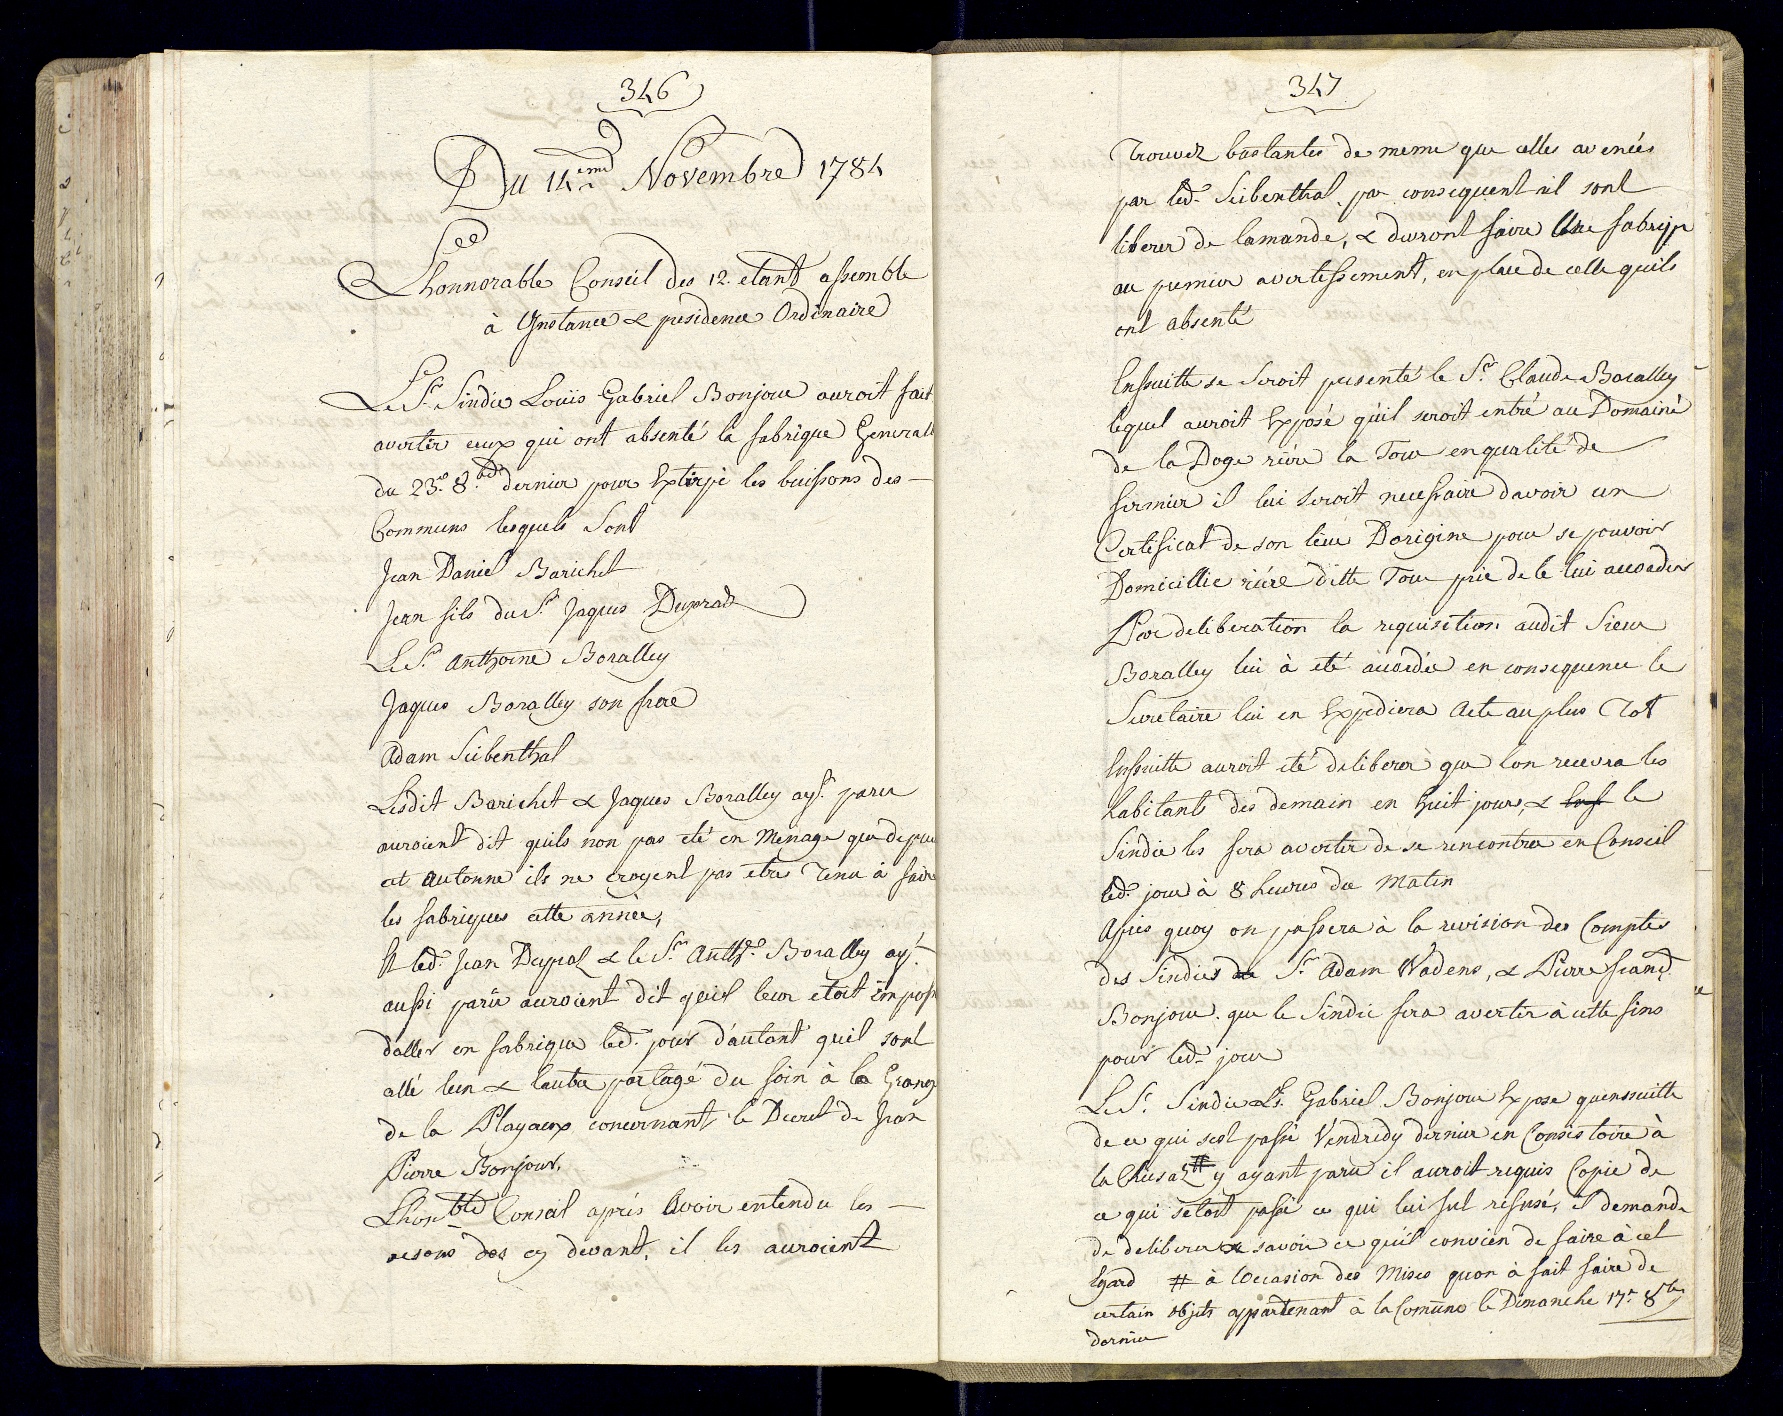 346
Du 14eme Novembre 1784
Lhonnorable Conseil des 12. etant assemble
à Instance & presidence Ordinaire
Le Sr. Sindic Loüis Gabriel Bonjour auroit fait
avertir ceux qui ont absenté la fabrique General
du 23e. 8.bre dernier pour Extirpé les buissons des
Communs lesquels Sont
Jean Daniel Barichet
Jean fils du Sr. Jaques Dupraz
Le Sr. Anthoine Boralley
Jaques Boralley son frere
Adam Seibenthal
Lesdit Barichet & Jaques Boralley ayt. paru
auroient dit quils non pas eté en Menage que depui
cet Automne ils ne croyent pas etre Tenu à faire
les fabriques cette année,
Et led. Jean Dupraz & le Sr. Anthe. Boralley ayt.
aussi parû auroient dit quil leur etoit impossi
daller en fabrique led. jour d'autant quil sont
allé lun & lautre partagé du foin à la Grange
de la Playaux concernant le Decret de Jean
Pierre Bonjour,
Lhonble Conseil aprés avoir entendu les
resons des cy devant, il les auroient
347
Trouvez bastantes de meme que celles avenées
par led. Seibenthal, par consequent ail sont
liberer de lamande, & devront faire Une fabriqe
au premier avertissement, en place de celle quils
ont absenté
Ensuitte se seroit presenté le Sr. Claude Boralley
lequel auroit Exposé qu'il seroit entré au Domaine
de la Doge riére la Tour en qualité de
fermier il lui seroit necessaire davoir un
Certificat de son lieu Dorigine pour se pouvoir
Domicillie riére ditte Tour prie de le lui accorder
Par deliberation la requisition audit Sieur
Boralley lui à eté accordée en consequence le
Secretaire lui en Expediera Acte au plus Tot
Ensuitte auroit eté deliberer que lon recevra les
habitants des demain en huit jours, & Ens le
Sindic les fera avertir de se rencontrer en Conseil
led. jour à 8 heures du Matin
Aprés quoy on passera à la revision des Comptes
des Sindics de Sr. Adam Wadens, & Pierre franç.
Bonjour. que le Sindic fera avertir à cette fins
pour led. jour
Le Sr. Sindic Ls. Gabriel Bonjour Expose quensuitte
de ce qui sest passé Vendredy dernier en Consistoire à
la Chiésaz # y ayant paru il auroit requis Copie de
ce qui sétoit passé ce qui lui fut refusé, il demande
de deliberer & savoir ce qu'il convien de faire à cet
Egard # à l'occasion des Mises quon à fait faire de
certain objets appartenant à la Comune le Dimanche 17e. 8bre
dernier